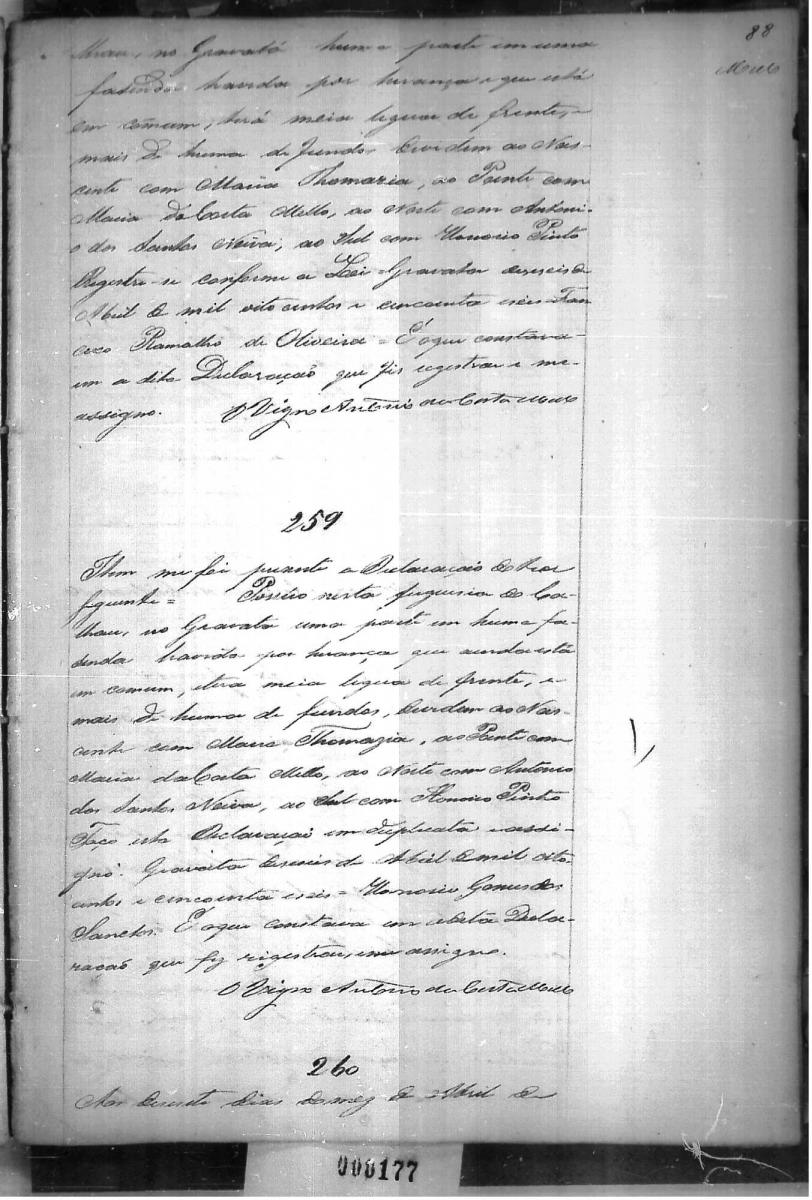 88
Mello
thau, no Gravatá huma parte em uma
fasenda havida por herança e que está
em comum, terá meia legua de frente, e
mais de huma de fundos. Dividem ao Nas-
cente com Maria Thomazia, ao Poente com
Maria da Costa Mello, ao Norte com Antoni-
o dos Santos Neiva, ao Sul com Honorio Pinto
Registre-se conforme a Lei. Gravata deseseis de
Abril de mil oito centos e cincoenta e seis = Fran
cisco Ramalho de Oliveira = É o que constava
em a dita Declaração que fis registrar e me
assigno. O Vigro Antonio da Costa Mello
259
Item me foi presente a Declaração do theor
seguinte = Possúo nesta freguesia do Co-
thau, no Gravata uma parte em huma fa-
senda havida por herança que ainda está
em comum, e terá meia legua de frente, e
mais de huma de fundos, dividem ao Nas-
cente com Maria Thomazia, ao Poente com
Maria da Costa Mello, ao Norte com Antonio
dos Santos Neiva, ao Sul com Honorio Pinto
Faço esta Declaração em duplicata e assi-
gno. Gravata deseseis de Abril de mil oito
centos e cincoenta e seis = Honorio Gomes dos
Sanctos. É o que constava em a dita Decla-
ração que fiz registrar, e me assigno.
O Vigro Antonio da Costa Mello
260
Aos desesete dias do mez de Abril de
000177